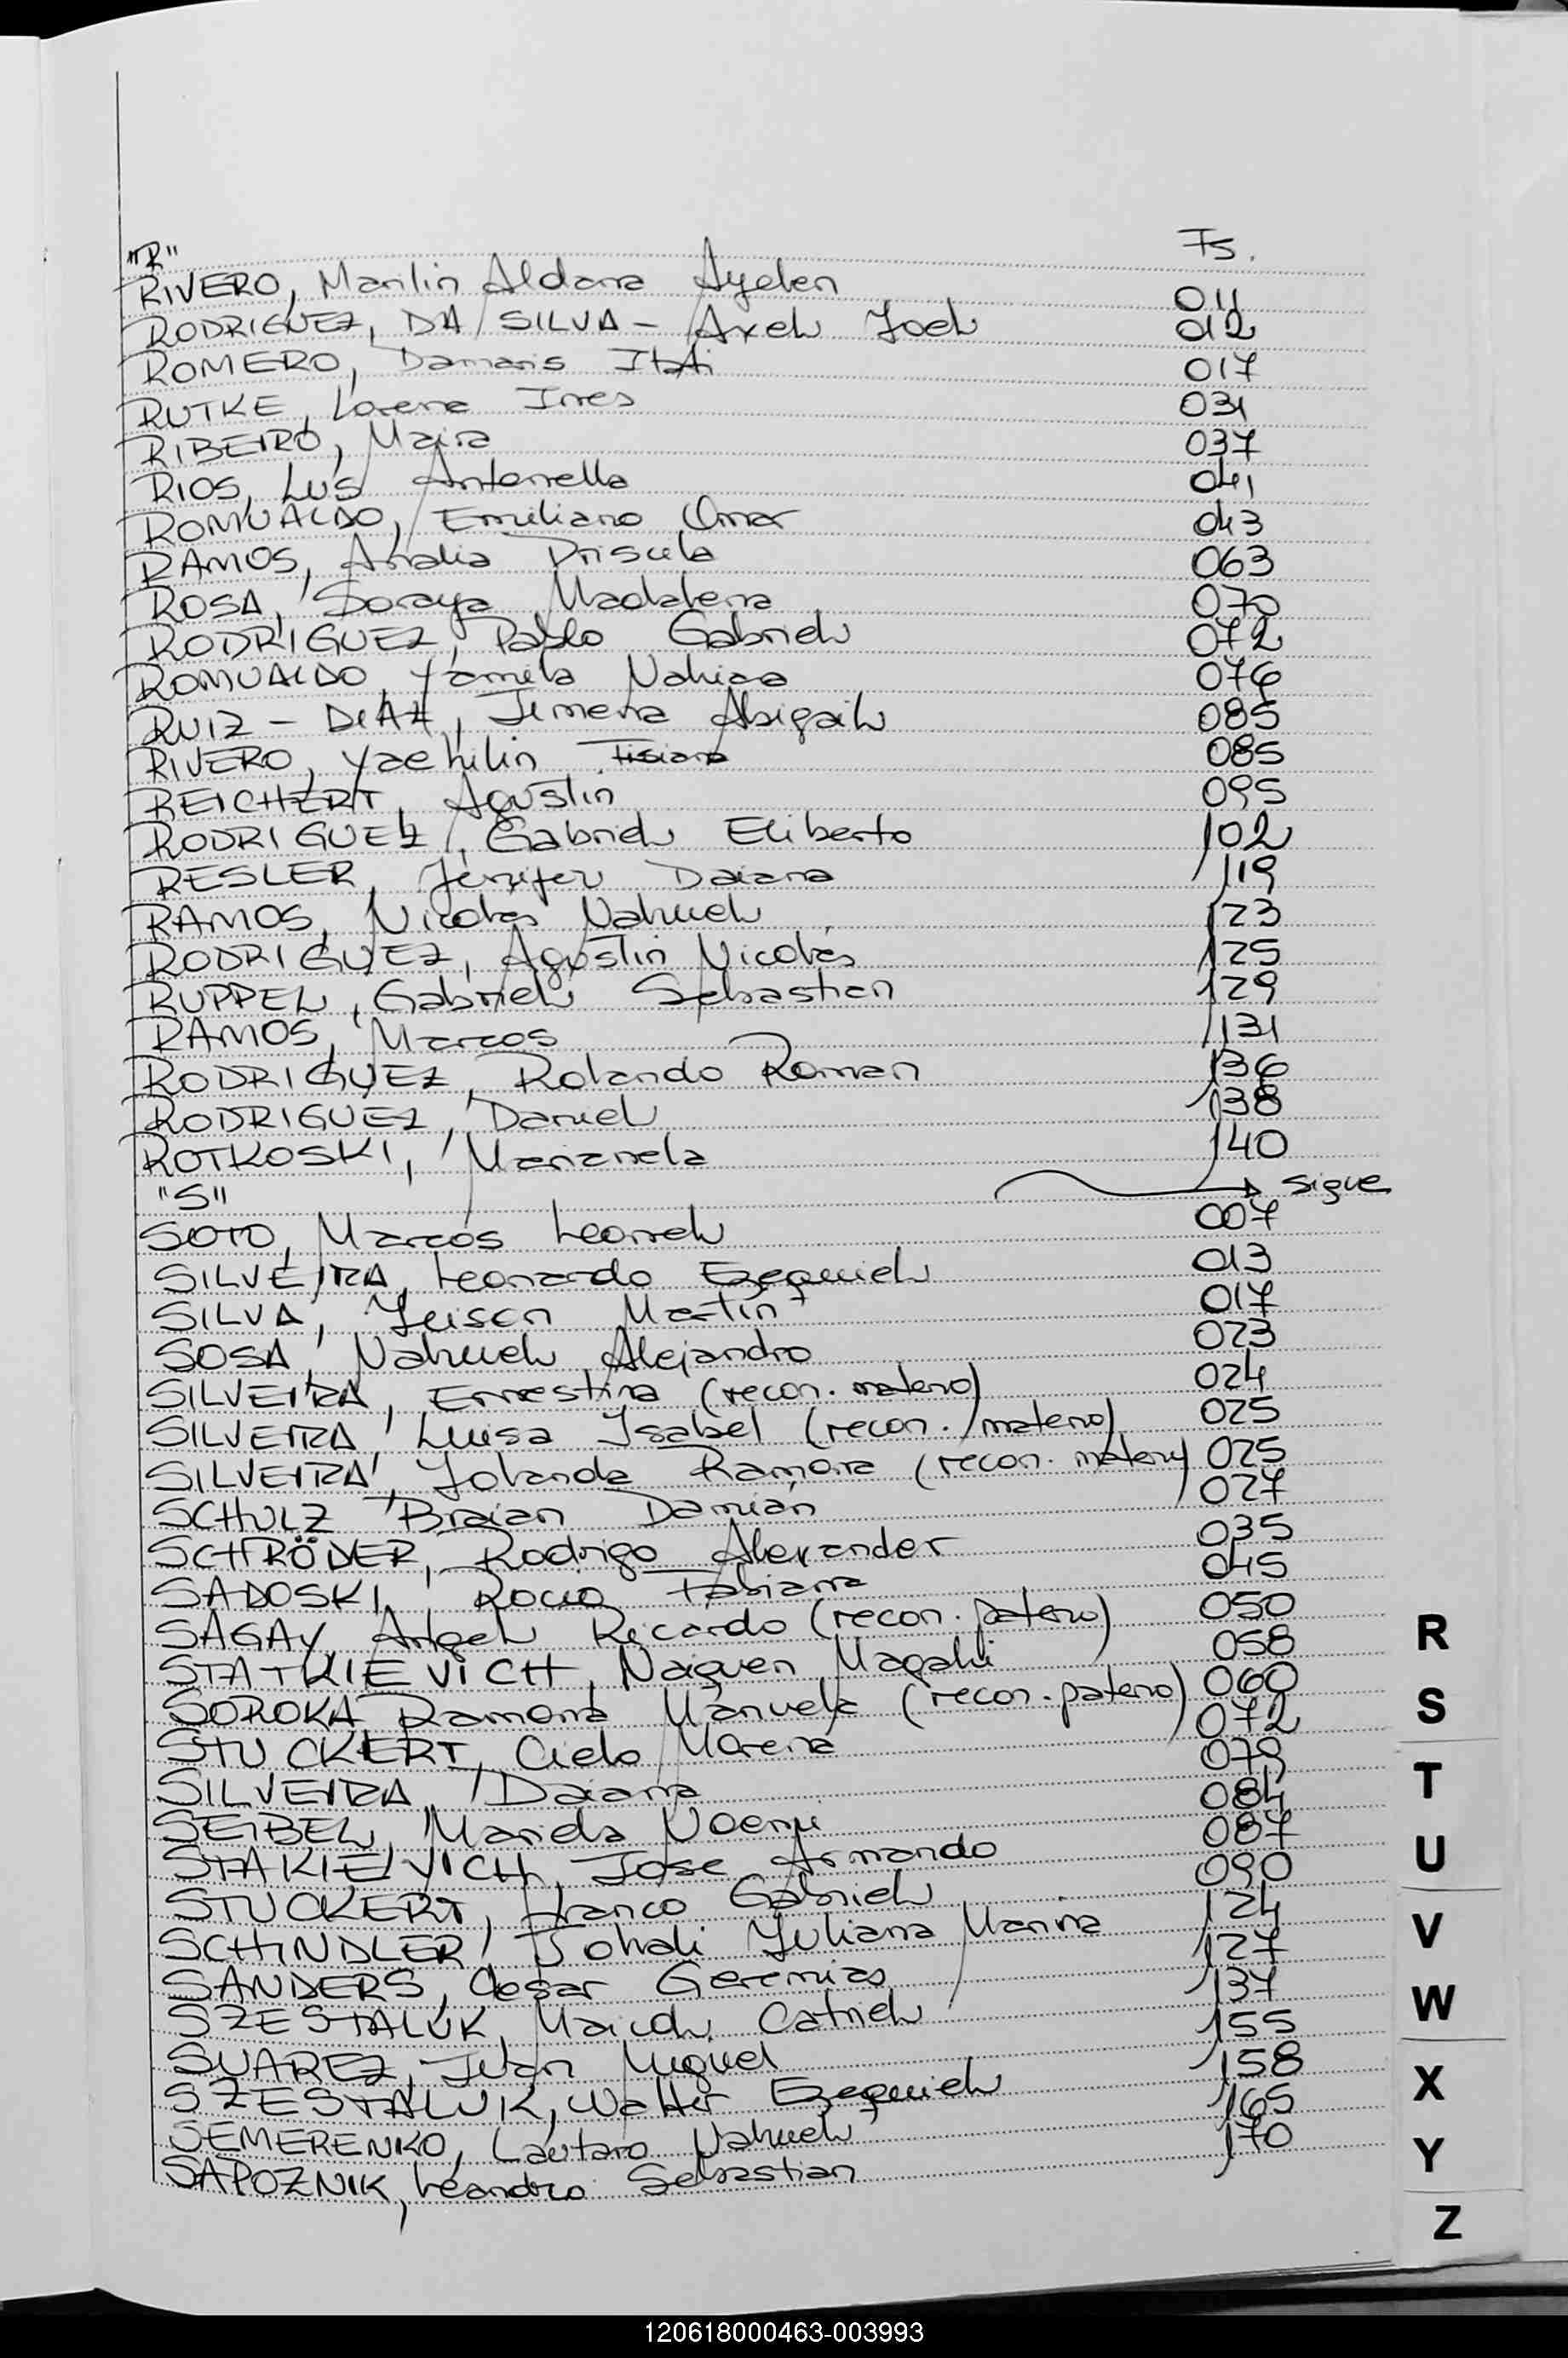 "R" Fs.
RIVERO, Marilin Aldana Ayelen 011
RODRIGUEZ, DA SILVA - Axel Joel 012
ROMERO, Damaris Itati 017
RUTKE, Lorena Ines 031
RIBEIRO, Maira 037
RIOS, Luis Antonella 041
ROMUALDO, Emiliano Omar 043
RAMOS, Analia Priscila 063
ROSA, Soraya Madalena 070
RODRIGUEZ, Pablo Gabriel 072
ROMUALDO, Yamila Nahiara 076
RUIZ - DIAZ, Jimena Abigail 085
RIVERO, Yaehilin Tisiana 085
REICHERT, Agustin 095
RODRIGUEZ, Gabriel Eliberto 102
RESLER, Jenifer Daiana 119
RAMOS, Nicolas Nahuel 123
RODRIGUEZ, Agustin Nicolás 125
RUPPEL, Gabriel Sebastian 129
RAMOS, Marcos 131
RODRIGUEZ, Rolando Roman 136
RODRIGUEZ, Daniel 138
ROTKOSKI, Marianela 140
"S" sigue
SOTO, Marcos Leonel 007
SILVEIRA, Leonardo Ezequiel 013
SILVA, Jeison Martin 017
SOSA, Nahuel Alejandro 023
SILVEIRA, Ernestina (recon. materno) 024
SILVEIRA, Luisa Isabel (recon. materno) 025
SILVEIRA, Yolanda Ramona (recon. materno) 025
SCHULZ, Braian Damián 027
SCHRÖDER, Rodrigo Alexander 035
SADOSKI, Rocio Fabiana 045
SAGAY, Angel Ricardo (recon. paterno) 050
STATKIEVICH, Naiquen Magali 058
SOROKA, Ramona Manuela (recon. paterno) 060
STUCKERT, Cielo Morena 072
SILVEIRA, Daiana 079
SEIBEL, Mariela Noemi 084
STAKIEVICH, Jose Armando 087
STUCKERT, Franco Gabriel 090
SCHINDLER, Johali Juliana Marina 124
SANDERS, Cesar Geremias 127
SZESTALUK, Maicol Catriel 137
SUAREZ, Juan Miguel 155
SZESTALUK, Walter Ezequiel 158
SEMERENKO, Lautaro Nahuel 165
SAPOZNIK, Leandro Sebastian 170
R
S
T
U
V
W
X
Y
Z
120618000463-003993